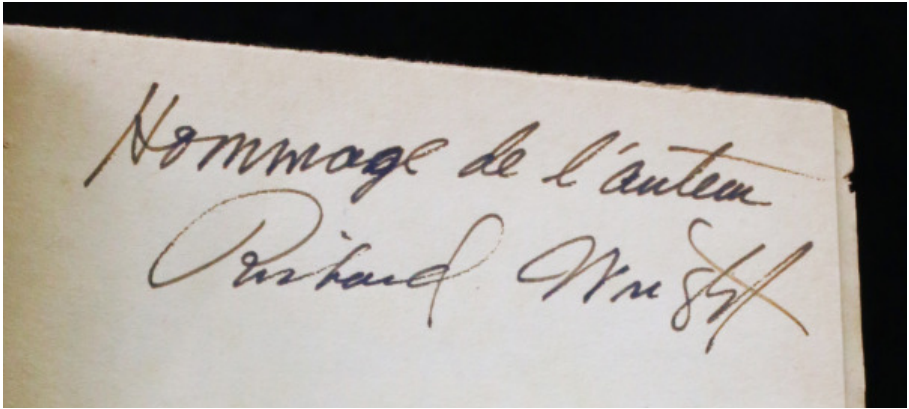 Hommage de l'auteur
Richard Wright